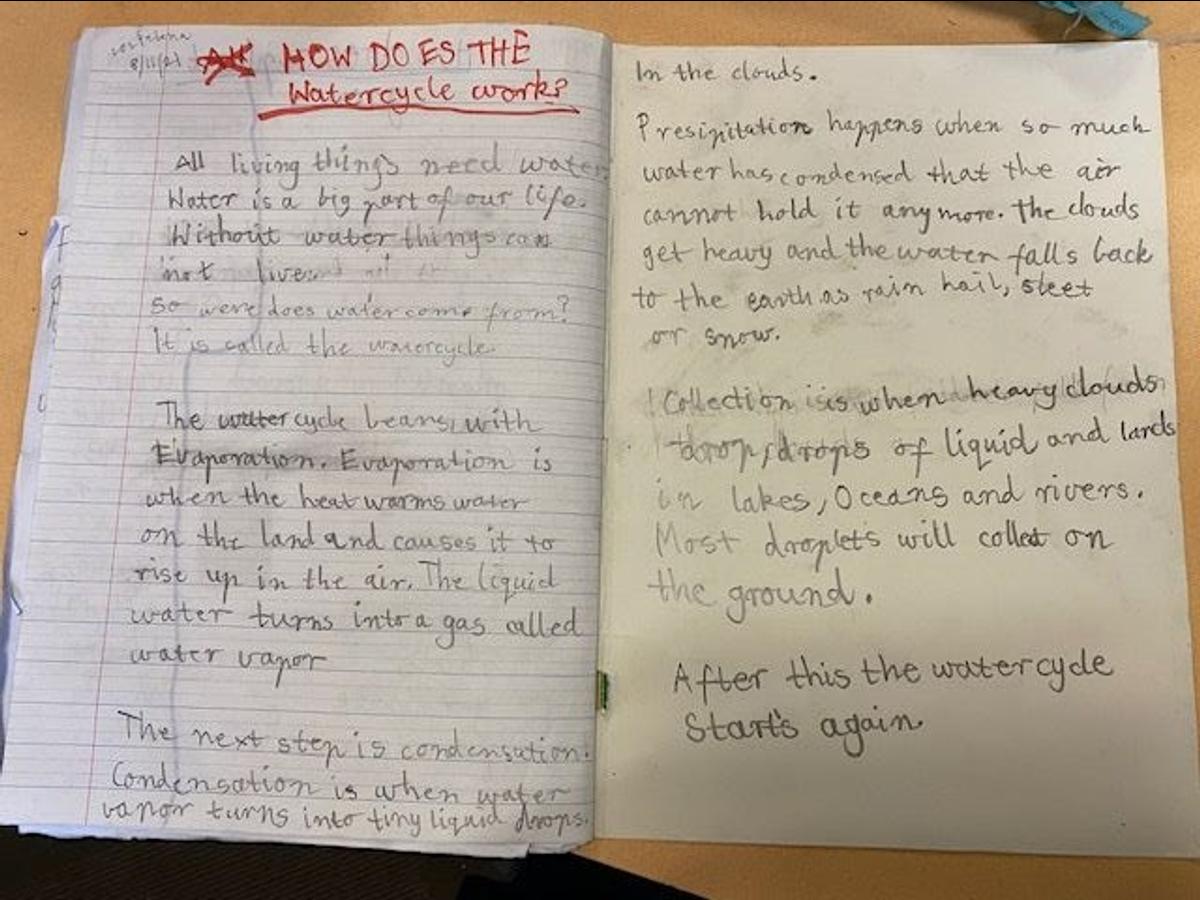 8/11/21
HOW DOES THE
Watercycle work?
All living things need water
Water is a big part of our life.
Without water things can
not live
So were does water come from?
It is called the watercycle.
The watercycle beans, with
Evaporation. Evaporation is
when the heat warms water
on the land and causes it to
rise up in the air. The liquid
water turns into a gas called
water vapor
The next step is condensation.
Condensation is when water
vapor turns into tiny liquid drops.
In the clouds.
Presipitation happens when so much
water has condensed that the air
cannot hold it anymore. The clouds
get heavy and the water falls back
to the earth as rain hail, sleet
or snow.
Collection is when heavy clouds
drop, drops of liquid and lands
in lakes, Oceans and rivers.
Most droplets will collect on
the ground.
After this the watercycle
Starts again.